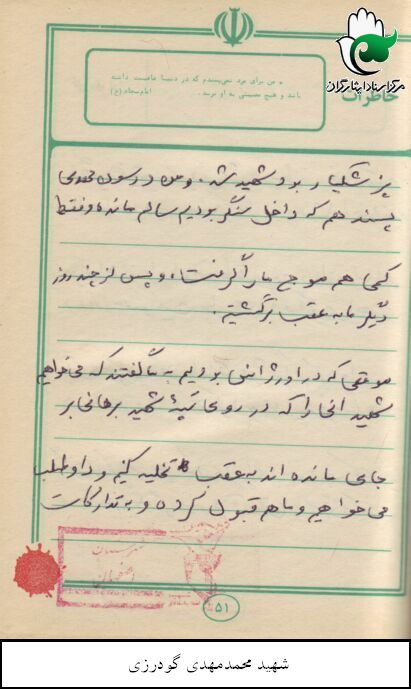 مرکز اسناد ایثارگران
خاطرات
من برای مرد نمی‌پسندم که در دنیا عافیت داشته
باشد و هیچ مصیبتی به او نرسد. امام سجاد (ع)
پزشکیار بود شهید شد. و من و رسول محمودی
پسند هم که داخل سنگر بودیم سالم مانده و فقط
کمی هم موج ما را گرفت و پس از چند روز
دیگر ما به عقب برگشتیم.
موقعی که در اورژانس بودیم به ما گفتند که می‌خواهیم
شهدائی را که در روی تپه شهید برهانی بر
جای مانده اند به عقب تخلیه کنیم و داوطلب
می‌خواهیم و ما هم قبول کرده و به تدارکات
۵۱
شهید محمدمهدی گودرزی